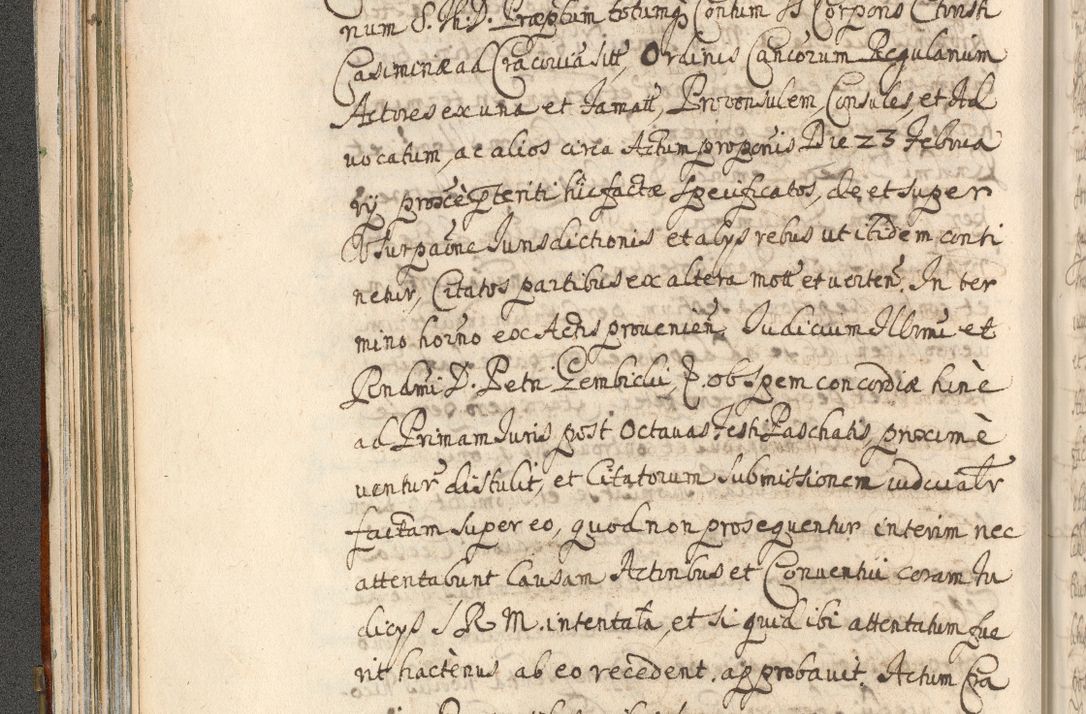 num S. Th. D. Præptum totumq Contum SS Corporis Christi
Casiminæ ad Cracouia sitt, Ordinis Canoorum Regularium
Actores ex una et Famatt, Proconsulem, Consules, et Ad
uocatum, ac alios circa Actum proponis Die 23 Februa
rij proxè pteriti hic factæ specificatos, de et super
Vsurpaone Iurisdictionis et alys rebus ut ibidem conti
netur, Citatos partibus ex altera mott et uerten. In ter
mino horno ex Actis prouenien Iudicium Illrmi et
Rendmi D. Petri Gembicki E. ob spem concordiæ hinc
ad Primam Iuris post Octauas Festi Paschatis, proxime
uentur distulit, et Citatorum submissionem iudcualr
factam super eo, quod non prosequentur interim nec
attentabunt Causam Actoribus et Conuentui coram Iu
dicys S R M. intentata, et si quid ibi attentatum fue
rit hactenus ab eo recedent. approbauit. Actum Cra